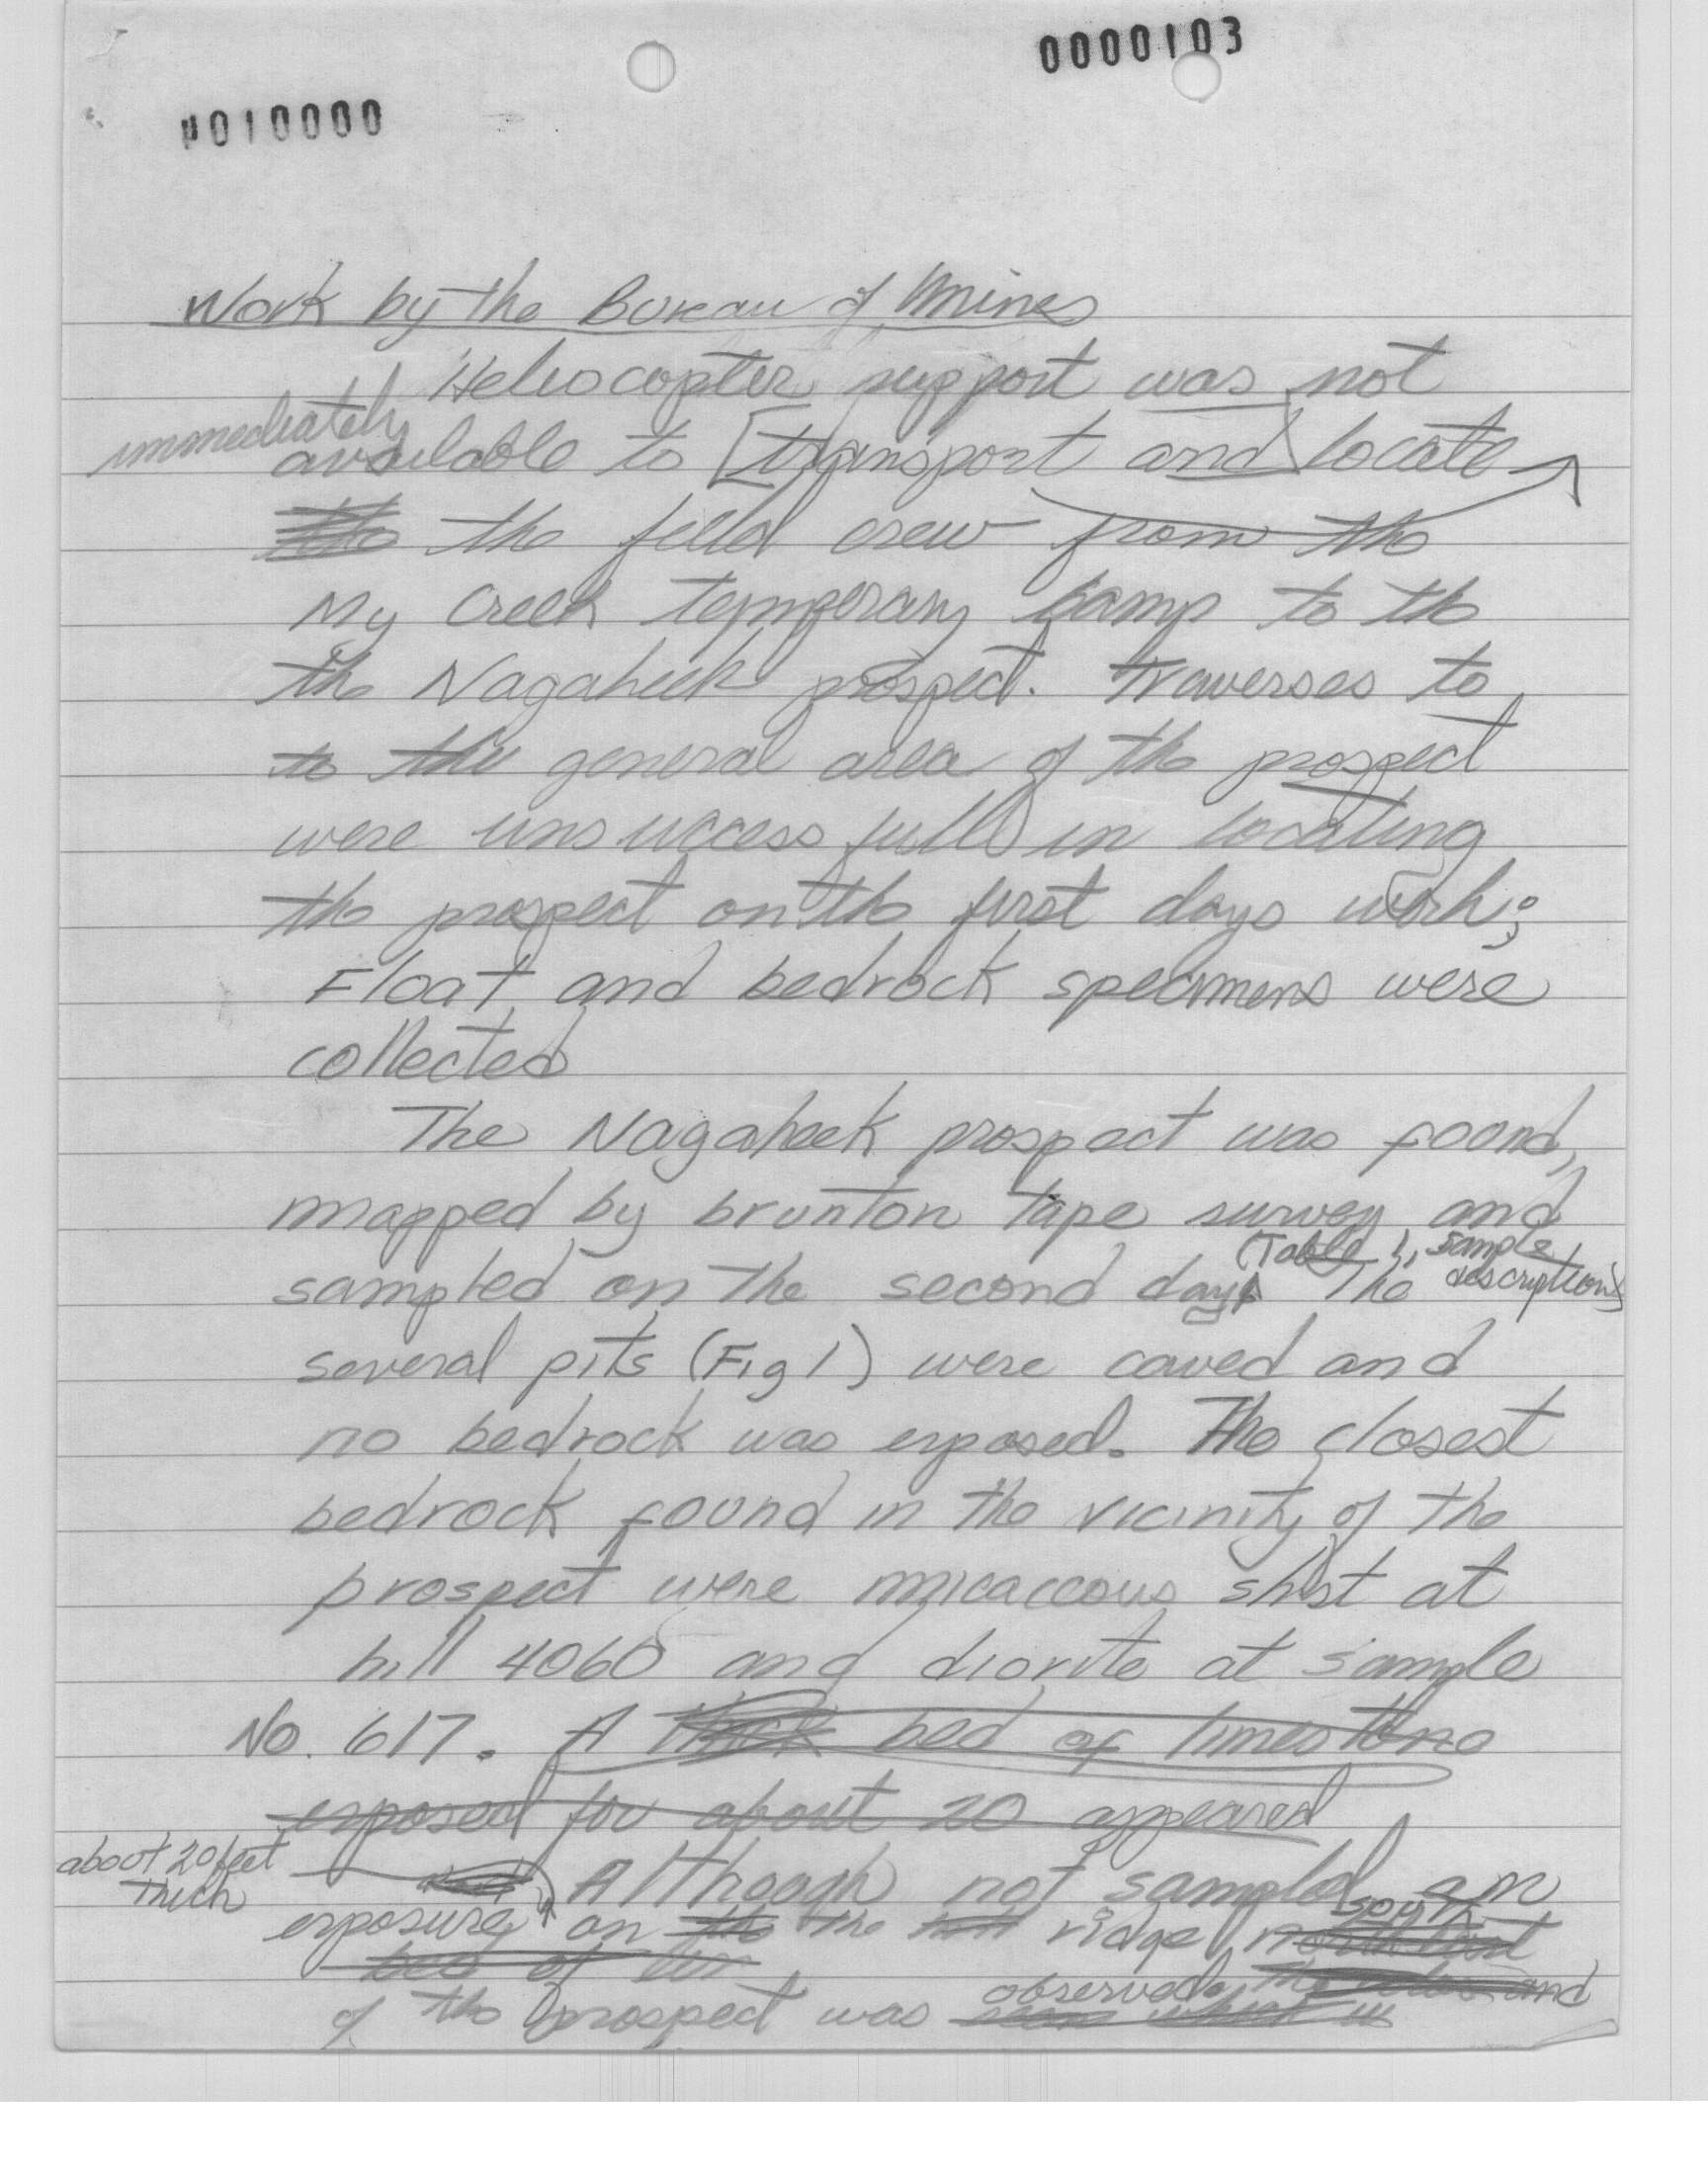 0000103
#010000
Work by the Bureau of Mines
Heliocopter support was not
immediately
available to [transport and locate
the feild crew from the
My Creek temporary camp to the
the Nagaheek prospect. Traverses to
to the general area of the prospect
were unsuccessfull in locating
the prospect on the first days work;
Float and bedrock specimens were
collected
The Nagaheek prospect was found,
mapped by brunton tape survey, and
(Table 1, sample
sampled on the second day. The descriptions)
several pits (Fig 1) were caved and
no bedrock was exposed. The closest
bedrock found in the vicinity of the
prospect were micaceous shist at
hill 4060 and diorite at sample
No. 617. A thick bed of limestone
exposed for about 20 appeared
about 20 feet
thick
Although not sampled an
south
exposure on the the ridge
bed of
observed and
of the prospect was